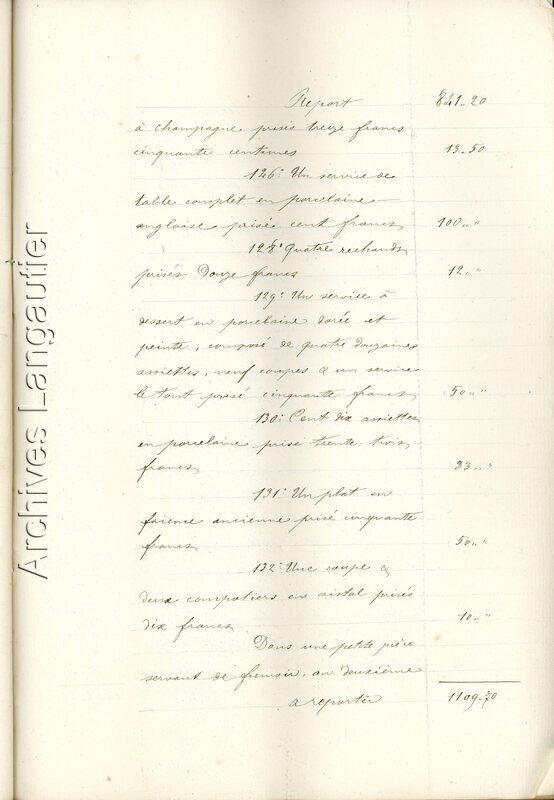 Report 841.. 20
à champagne prisés treize francs
cinquante centimes 13. 50
126° Un service de
table complet en porcelaine
anglaise prisé cent francs 100 .. "
128° Quatre rechauds
prisés Douze francs 12 .. "
129° Un service à
dessert en porcelaine dorée et
peinte, composé de quatre douzaines
assiettes, neuf coupes & un service
le tout prisé cinquante francs 50 .. "
130° Cent dix assiettes
en porcelaine prisé trente-trois
francs 33 .. "
131° Un plat en
faience ancienne prisé cinquante
francs 50 .. "
132° Une coupe &
deux compotiers en cristal prisés
dix francs 10 .. "
Dans une petite pièce
servant de fumoir, au deuxième
a reporter 1109. 70
Archives Langautier